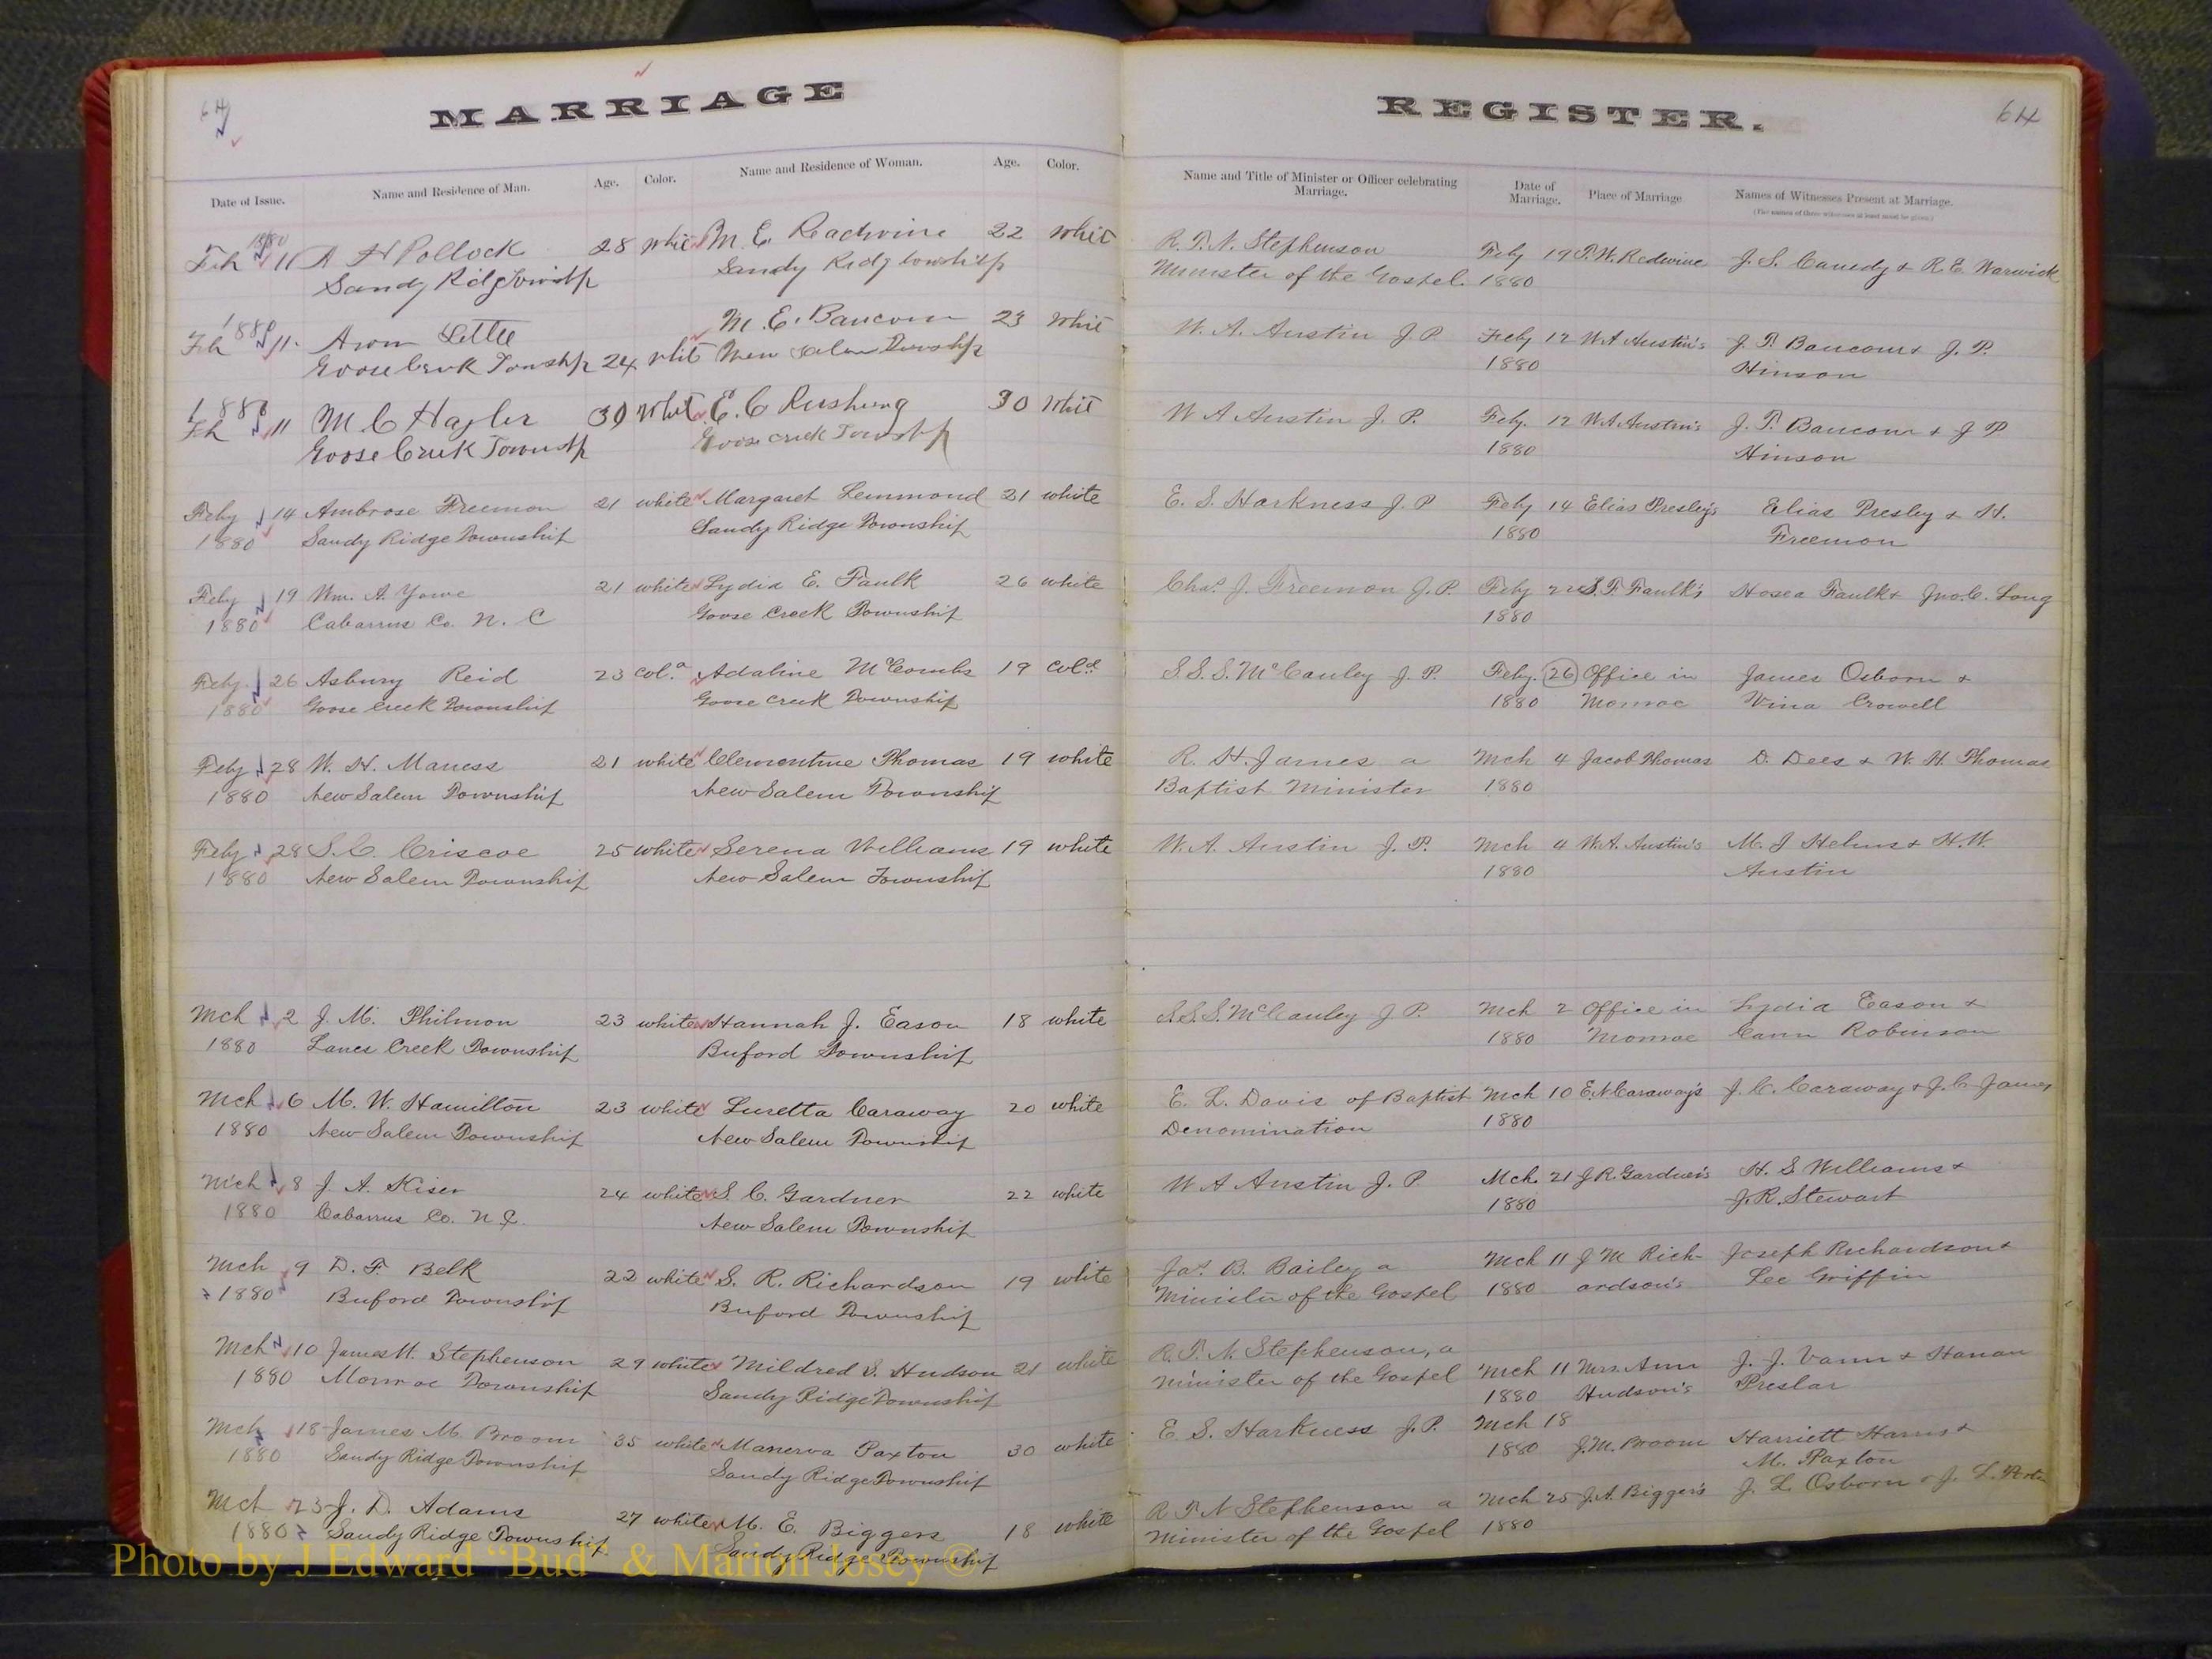 64
MARRIAGE REGISTER.
64
Date of Issue. Name and Residence of Man. Age. Color. Name and Residence of Woman. Age. Color. Name and Title of Minister or Officer celebrating Marriage. Date of Marriage. Place of Marriage Names of Witnesses Present at Marriage.
(The names of three witnesses at least must be given.)
1880
Feb 11 A H Pollock 28 White M. E. Readwine 22 White R. T. N. Stephenson Feby 19 T. W. Redwine J. S. Canedy & R. E. Warwick
Sandy Ridg Township Sandy Ridg township Minister of the Gospel. 1880
1880
Feb 11. Aron Little M. E. Baucom 23 White W. A. Austin J. P. Feby 12 W A Austin's J. T. Baucom & J. P.
Goose Creek Township 24 White New Salem Township 1880 Hinson
1880
Feb 11 M C Hagler 30 White E. C. Rushing 30 White W A Austin J. P. Feby. 12 W A Austin's J. T. Baucom & J P
Goose Creek Township Goose Creek Township 1880 Hinson
Feby 14 Ambrose Freemon 21 white Margaret Lemmond 21 white E. S. Harkness J. P Feby 14 Elias Presley's Elias Presley & H.
1880 Sandy Ridge Township Sandy Ridge Township 1880 Freemon
Feby 19 Wm. A. Yowe 21 white Lydia E. Faulk 26 white Chas. J. Freemon J. P. Feby 22 S. F. Faulk's Hosea Faulk & Jno. C. Long
1880 Cabarrus Co. N. C Goose Creek Township 1880
Feby. 26 Asbury Reid 23 Cold. Adaline McCombs 19 Cold. S. S. S. McCauley J. P. Feby. 26 Office in James Osborn &
1880 Goose Creek Township Goose Creek Township 1880 Monroe Vina Crowell
Feby 28 W. H. Maness 21 white Clementine Thomas 19 white R. H. James a Mch 4 Jacob Thomas D. Dees & W. H. Thomas
1880 New Salem Township New Salem Township Baptist Minister 1880
Feby 28 S. C. Criscoe 25 white Serena Williams 19 white W. A. Austin J. P. Mch 4 W. A. Austin's M. J Helms & H. W.
1880 New Salem Township New Salem Township 1880 Austin
Mch 2 J. M. Philmon 23 white Hannah J. Eason 18 white S. S. S. McCauley J P. Mch 2 Office in Lydia Eason &
1880 Lanes Creek Township Buford Township 1880 Monroe Cann Robinson
Mch 6 M. W. Hamilton 23 white Luretta Caraway 20 white E. L. Davis of Baptist Mch 10 E. N. Caraway's J. C. Caraway & J. C. James
1880 New Salem Township New Salem Township Denomination 1880
Mch 8 J. A. Kiser 24 white S. C. Gardner 22 white W A Austin J. P Mch. 21 J R. Gardner's H. S Williams &
1880 Cabarrus Co. N. C. New Salem Township 1880 J. R. Stewart
Mch 9 D. F. Belk 22 white S. R. Richardson 19 white Jas. B. Bailey a Mch 11 J M Rich- Joseph Richardson &
1880 Buford Township Buford Township Minister of the Gospel 1880 ardson's Lee Griffin
Mch 10 James H. Stephenson 29 white Mildred S. Hudson 21 white R. T. N. Stephenson, a Mch 11 Mrs. Ann J. J. Vann & Hanan
1880 Monroe Township Sandy Ridge Township Minister of the Gospel 1880 Hudson's Preslar
Mch 18 James M. Broom 35 white Manerva Paxton 30 white E. S. Harkness J. P. Mch 18 Harriett Harris &
1880 Sandy Ridge Township Sandy Ridge Township 1880 J. M. Broom M. Paxton
Mch 23 J. D. Adams 27 white M. E. Biggers 18 white R T N Stephenson a Mch 25 J. A. Bigger's J. L. Osborn & J. L.
1880 Sandy Ridge Township Sandy Ridge Township Minister of the Gospel 1880
Photo by J Edward “Bud” & Marion Josey ©